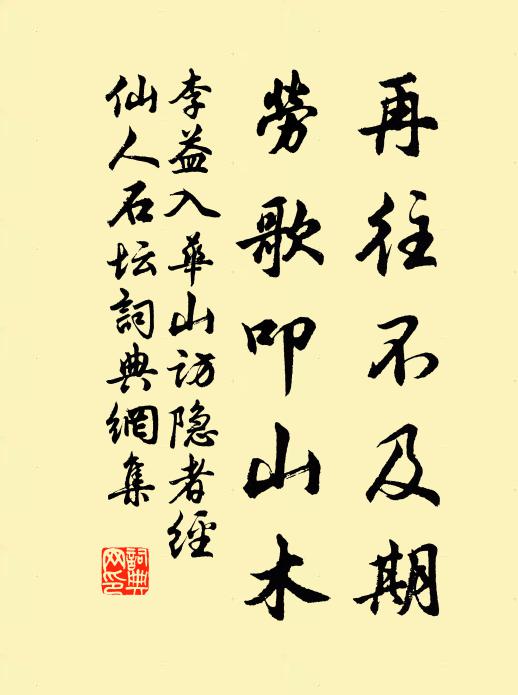 再往不及期
勞歌叩山木
李益入華山访隐者經
仙人石坛詞典網集
詞典網印